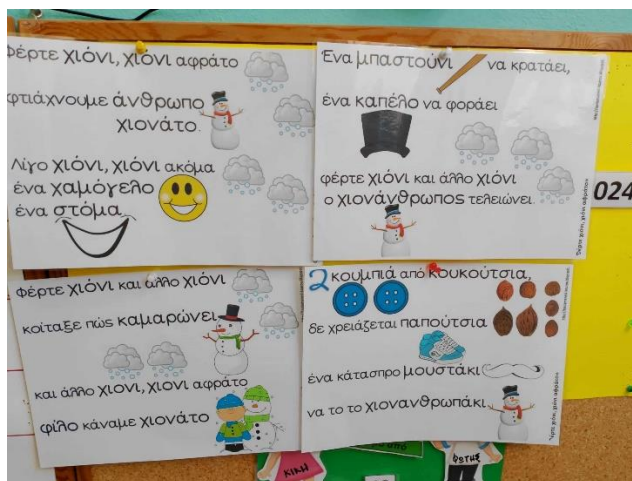 φέρτε χιόνι, χιόνι αφράτο
φτιάχνουμε άνθρωπο
χιονάτο.
Λίγο χιόνι, χιόνι ακόμα
ένα χαμόγελο
ένα στόμα
Ένα μπαστούνι να κρατάει,
ένα καπέλο να φοράει
φέρτε χιόνι και άλλο χιόνι
ο χιονάνθρωπος τελειώνει.
φέρτε χιόνι και άλλο χιόνι
κοίταξε πώς καμαρώνει
και άλλο χιόνι, χιόνι αφράτο
φίλο κάναμε χιονάτο
2 κουμπιά από κουκούτσια,
δε χρειάζεται παπούτσια
ένα κάτασπρο μουστάκι
να το το χιονανθρωπάκι
024
ΚΙΚΗ
ΦΩΤΗΣ